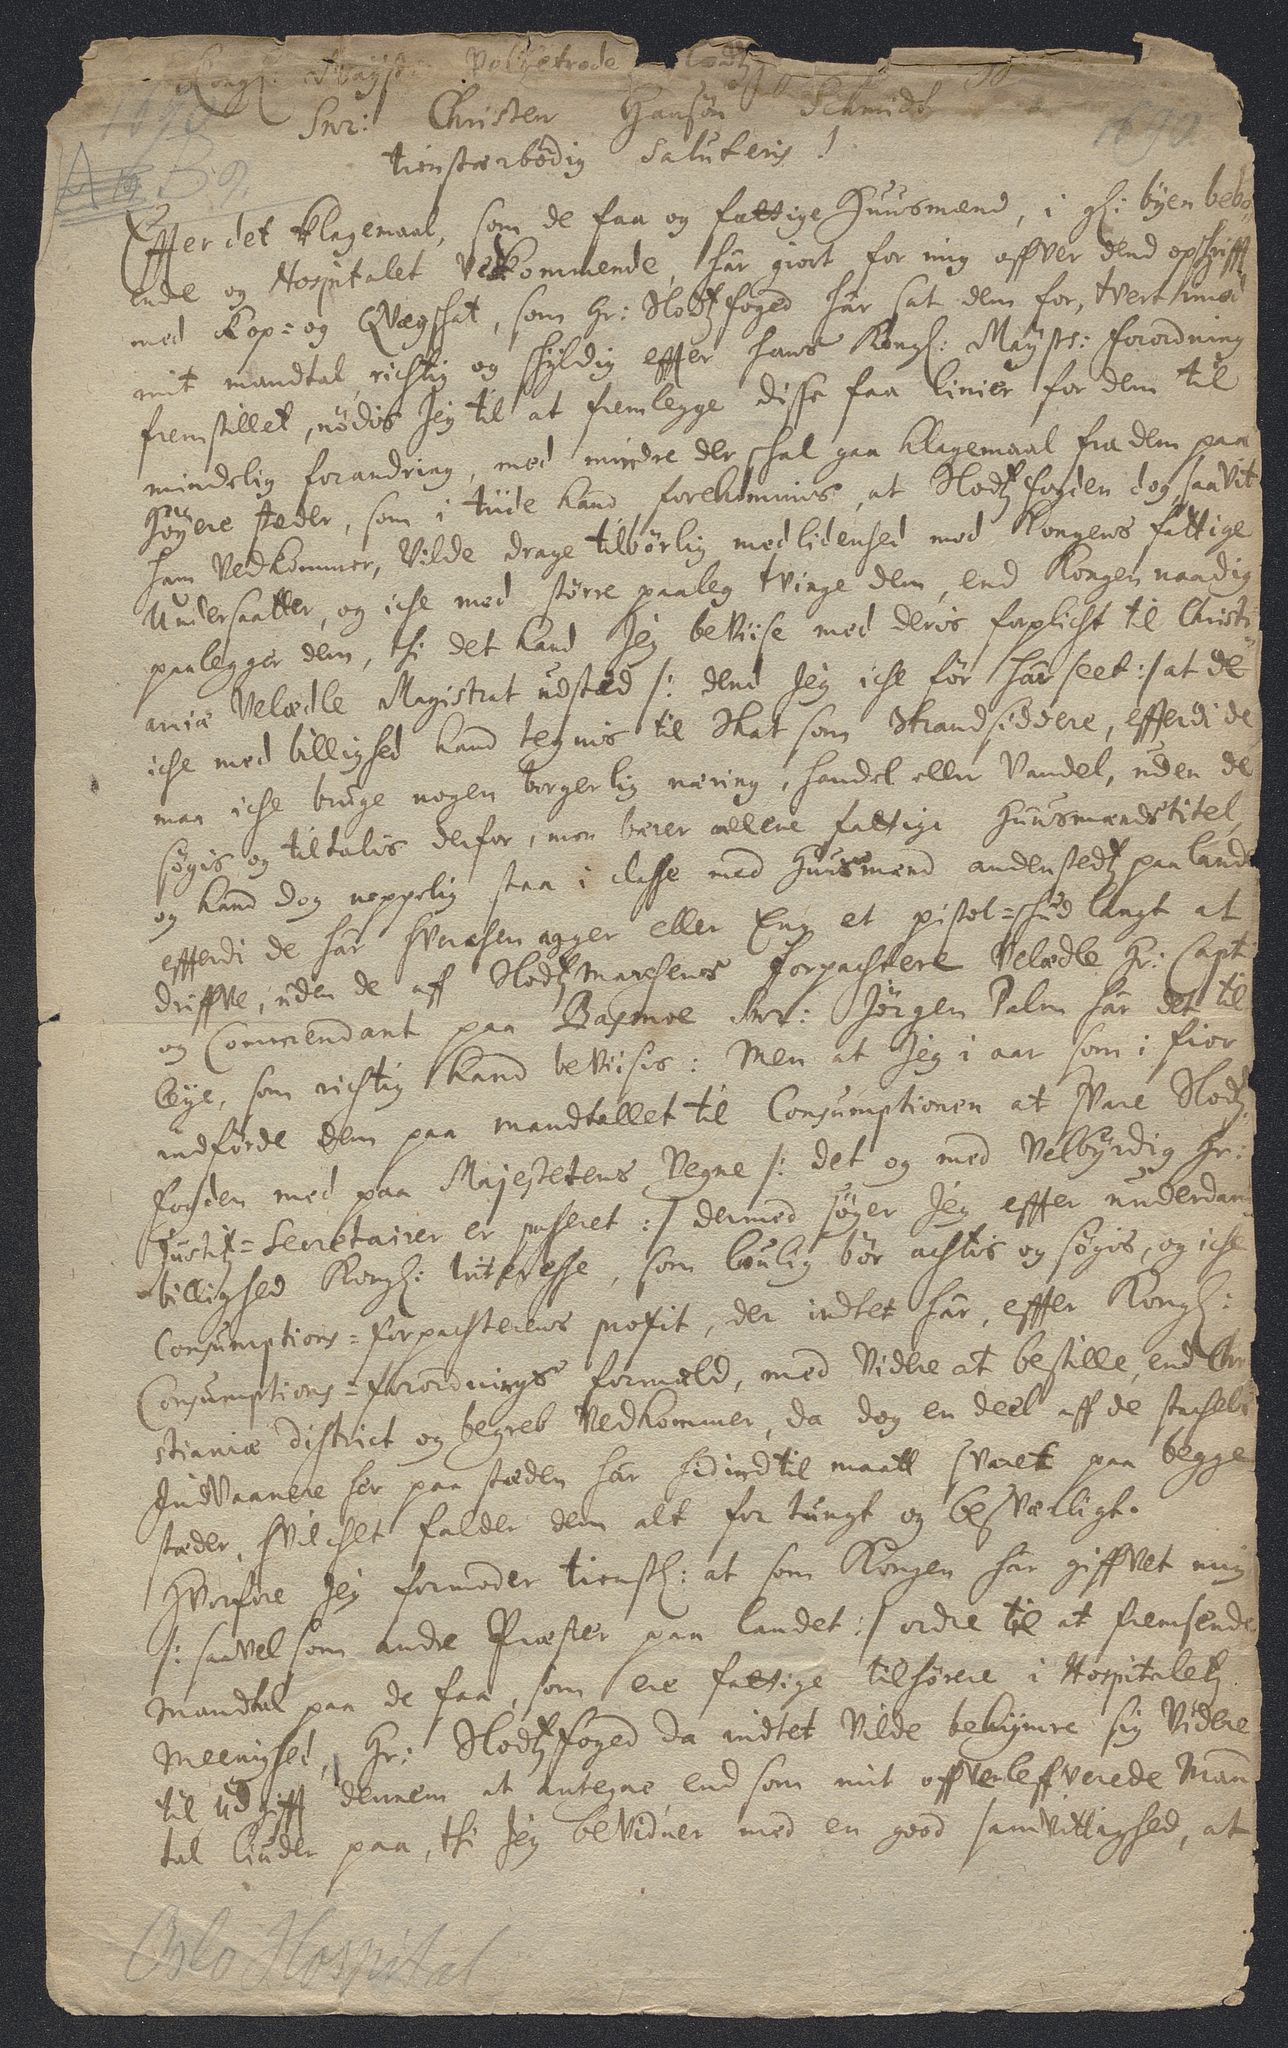 Kongl: Mayst: Velbetrode Slodtz
1690
1690
Snr: Christen Hansøn Schmidt
A 19. B 9.
tienstærbødig Salutem!
Effter det Klagemaal, som de faa og fattige Huusmænd, i gl: byen bebo-
ende og Hospitalet Vedkommende, hâr giort for mig offver dend opschrifft
med Kop- og Qvægschat, som Hr: Slodtzfoged hâr sat dem for, tvert imod
mit mandtal, richtig og schyldig effter hans Kongl: Mayst: forordning
fremstillet, nødis Jeg til at fremlegge disse faa linier for dem til
mindelig forandring, med mindre der schal gaa klagemaal fra dem paa
høyere stæder, som i tiide kand forekommis, at Slodtzfogden dog saavit
ham Vedkommer, Vilde drage tilbørlig medlidenhed med Kongens fattige
Undersaatter, og iche med større paaleg tvinge dem, end Kongen naadig
paalegger dem, thi det kand Jeg beviise med deris forplicht til Christi-
aniæ Velædle Magistrat udstæd /: dend Jeg iche før hâr seet :/ at de
iche med billighed kand tegnis til Skat som Strandsiddere, effterdi de
maa iche bruge nogen borgerlig næring, handel eller Vandel, uden de
søgis og tiltalis derfor, men bærer allene fattige Huusmændstitel,
og kand dog neppelig staa i classe med Huusmænd andenstedtz paa landet
effterdi de hâr hverchen agger eller Eng et pistol-schud langt at
driffve, uden de aff Slodtzmarchens Forpachtere Velædle Hr: Capt:
og Commendant paa Basmoe Snr: Jørgen Palm hâr det til
Leye, som richtig kand beviisis: Men at Jeg i aar som i fior
indførde dem paa mandtallet til Consumptionen at svare Slodtz-
fogden med paa Majestetens Vegne /: det og med Velbyrdig Hr:
Justitz-Secretairer er passeret :/ dermed søger Jeg effter underdan:
billighed Kongl: Interesse, som lovlig bør achtis og søgis, og iche
Consumptions-forpachterens profit, der indtet hâr, effter Kongl:
Consumptions-forordnings formæld, med Videre at bestille, end Chri-
stianiæ district og begreb Vedkommer, da dog en deel aff de stachels
Indvaanere her paa stæden hâr hidindtil maatt svaret paa begge
stæder, hvilchet falder dem alt for tungt og besværligt.
Hvorfore Jeg formoder tienstl: at som Kongen hâr giffvet mig
/: saavel som andre Præster paa landet :/ ordre til at fremsende
Mandtal paa de faa, som ere fattige tilhørere i Hospitaletz
Meenighed, Hr: Slodtzfoged da indtet Vilde bekymre sig Videre
til udgifft dennem at antegne end som mit offverleffverede Man-
tal liuder paa, thi Jeg bevidner med en good samvittighed, at
Oslo Hospital